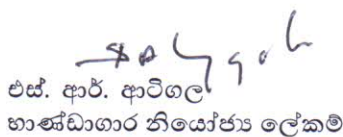 එස්. ආර්. ආටිගල
භාණ්ඩාගාර නියෝජ්‍ය ලේකම්